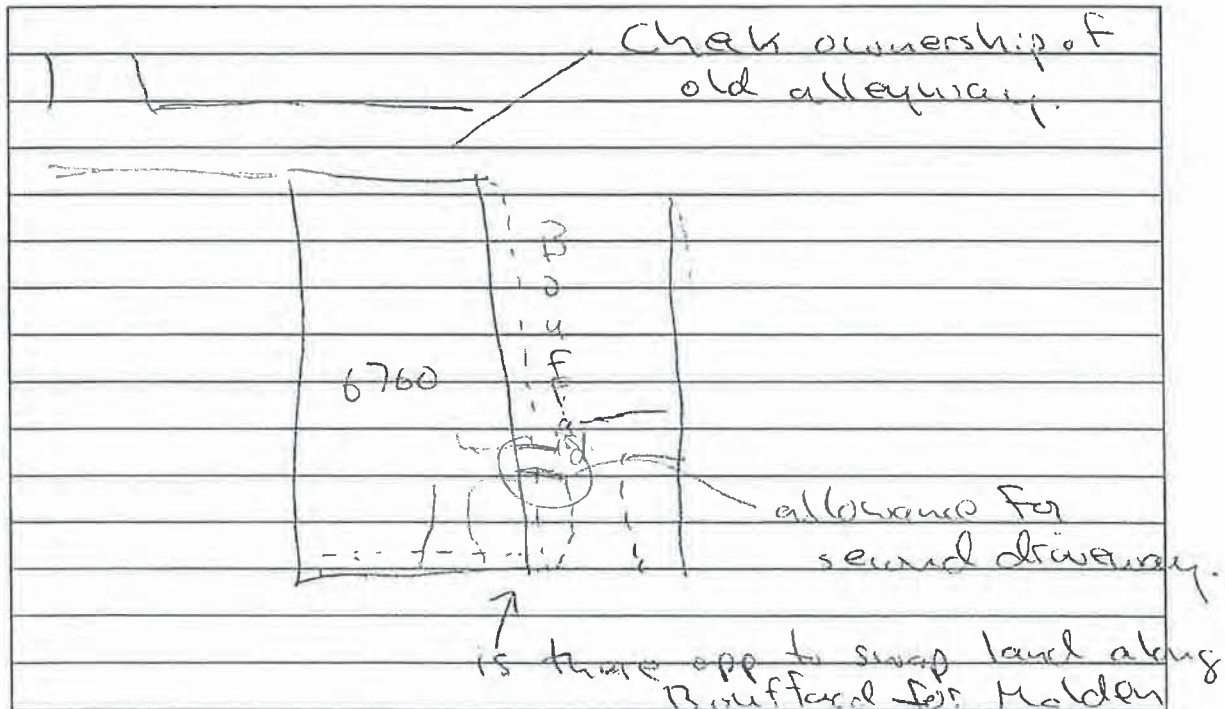 Chek ownership of
old alleyway.
Bouffard
6760
allowance for
second driveway.
is there opp to swap land along
Bouffard for Malden